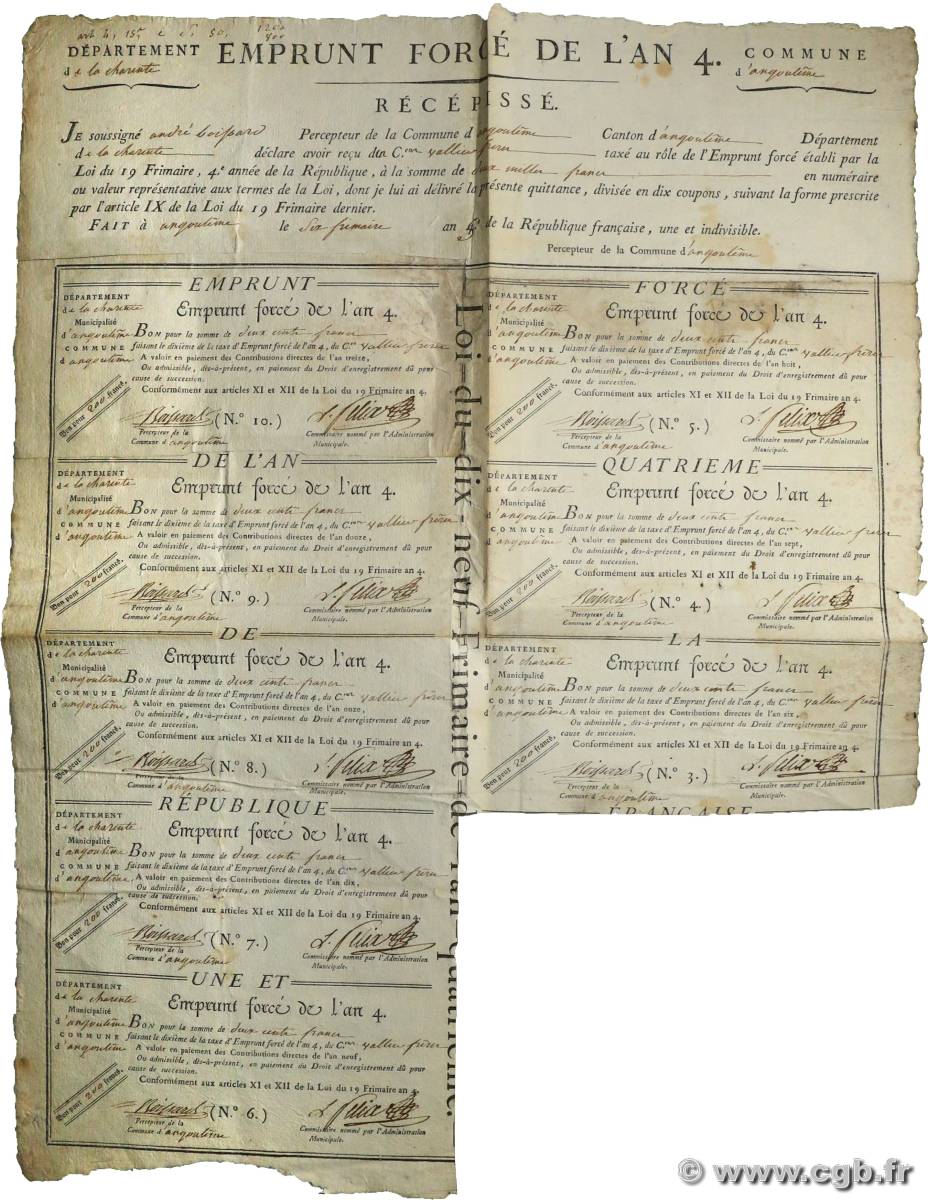 art 4, 15, 50, 1200
800
DÉPARTEMENT EMPRUNT FORCÉ DE L'AN 4. COMMUNE
de la charente d'angoulême
RÉCÉPISSÉ.
JE soussigné andré boissard Percepteur de la Commune d'angoulême Canton d'angoulême Département
de la charente déclare avoir reçu du C.en vallier frères taxé au rôle de l'Emprunt forcé établi par la
Loi du 19 Frimaire, 4.e année de la République, à la somme de deux milles francs en numéraire
ou valeur représentative aux termes de la Loi, dont je lui ai délivré la présente quittance, divisée en dix coupons, suivant la forme prescrite
par l'article IX de la Loi du 19 Frimaire dernier.
FAIT à angoulême le Six frimaire an de la République française, une et indivisible.
Percepteur de la Commune d'angoulême
Loi du dix-neuf Frimaire de l'an quatrième.
EMPRUNT
DÉPARTEMENT
de la charente Emprunt forcé de l'an 4.
Municipalité
d'angoulême BON pour la somme de deux cents francs
COMMUNE faisant le dixième de la taxe d'Emprunt forcé de l'an 4, du C.en vallier frères
d'angoulême A valoir en paiement des Contributions directes de l'an treize,
Ou admissible, dès-à-présent, en paiement du Droit d'enregistrement dû pour
cause de succession.
Conformément aux articles XI et XII de la Loi du 19 Frimaire an 4.
Bon pour 200 francs.
Boissard (N.° 10.) J. Felix
Percepteur de la Commissaire nommé par l'Administration
Commune d'angoulême Municipale.
DE L'AN
DÉPARTEMENT
de la charente Emprunt forcé de l'an 4.
Municipalité
d'angoulême BON pour la somme de deux cents francs
COMMUNE faisant le dixième de la taxe d'Emprunt forcé de l'an 4, du C.en vallier frères
d'angoulême A valoir en paiement des Contributions directes de l'an douze,
Ou admissible, dès-à-présent, en paiement du Droit d'enregistrement dû pour
cause de succession.
Conformément aux articles XI et XII de la Loi du 19 Frimaire an 4.
Bon pour 200 francs.
Boissard (N.° 9.) J. Felix
Percepteur de la Commissaire nommé par l'Administration
Commune d'angoulême Municipale.
DE
DÉPARTEMENT
de la charente Emprunt forcé de l'an 4.
Municipalité
d'angoulême BON pour la somme de deux cents francs
COMMUNE faisant le dixième de la taxe d'Emprunt forcé de l'an 4, du C.en vallier frères
d'angoulême A valoir en paiement des Contributions directes de l'an onze,
Ou admissible, dès-à-présent, en paiement du Droit d'enregistrement dû pour
cause de succession.
Conformément aux articles XI et XII de la Loi du 19 Frimaire an 4.
Bon pour 200 francs.
Boissard (N.° 8.) J. Felix
Percepteur de la Commissaire nommé par l'Administration
Commune d'angoulême Municipale.
RÉPUBLIQUE
DÉPARTEMENT
de la charente Emprunt forcé de l'an 4.
Municipalité
d'angoulême BON pour la somme de deux cents francs
COMMUNE faisant le dixième de la taxe d'Emprunt forcé de l'an 4, du C.en vallier frères
d'angoulême A valoir en paiement des Contributions directes de l'an dix,
Ou admissible, dès-à-présent, en paiement du Droit d'enregistrement dû pour
cause de succession.
Conformément aux articles XI et XII de la Loi du 19 Frimaire an 4.
Bon pour 200 francs.
Boissard (N.° 7.) J. Felix
Percepteur de la Commissaire nommé par l'Administration
Commune d'angoulême Municipale.
UNE ET
DÉPARTEMENT
de la charente Emprunt forcé de l'an 4.
Municipalité
d'angoulême BON pour la somme de deux cents francs
COMMUNE faisant le dixième de la taxe d'Emprunt forcé de l'an 4, du C.en vallier frères
d'angoulême A valoir en paiement des Contributions directes de l'an neuf,
Ou admissible, dès-à-présent, en paiement du Droit d'enregistrement dû pour
cause de succession.
Conformément aux articles XI et XII de la Loi du 19 Frimaire an 4.
Bon pour 200 francs.
Boissard (N.° 6.) J. Felix
Percepteur de la Commissaire nommé par l'Administration
Commune d'angoulême Municipale.
FORCÉ
DÉPARTEMENT
de la charente Emprunt forcé de l'an 4.
Municipalité
d'angoulême BON pour la somme de deux cents francs
COMMUNE faisant le dixième de la taxe d'Emprunt forcé de l'an 4, du C.en vallier frères
d'angoulême A valoir en paiement des Contributions directes de l'an huit,
Ou admissible, dès-à-présent, en paiement du Droit d'enregistrement dû pour
cause de succession.
Conformément aux articles XI et XII de la Loi du 19 Frimaire an 4.
Bon pour 200 francs.
Boissard (N.° 5.) J. Felix
Percepteur de la Commissaire nommé par l'Administration
Commune d'angoulême Municipale.
QUATRIEME
DÉPARTEMENT
de la charente Emprunt forcé de l'an 4.
Municipalité
d'angoulême BON pour la somme de deux cents francs
COMMUNE faisant le dixième de la taxe d'Emprunt forcé de l'an 4, du C.en vallier frères
d'angoulême A valoir en paiement des Contributions directes de l'an sept,
Ou admissible, dès-à-présent, en paiement du Droit d'enregistrement dû pour
cause de succession.
Conformément aux articles XI et XII de la Loi du 19 Frimaire an 4.
Bon pour 200 francs.
Boissard (N.° 4.) J. Felix
Percepteur de la Commissaire nommé par l'Administration
Commune d'angoulême Municipale.
LA
DÉPARTEMENT
de la charente Emprunt forcé de l'an 4.
Municipalité
d'angoulême BON pour la somme de deux cents francs
COMMUNE faisant le dixième de la taxe d'Emprunt forcé de l'an 4, du C.en vallier frères
d'angoulême A valoir en paiement des Contributions directes de l'an six,
Ou admissible, dès-à-présent, en paiement du Droit d'enregistrement dû pour
cause de succession.
Conformément aux articles XI et XII de la Loi du 19 Frimaire an 4.
Bon pour 200 francs.
Boissard (N.° 3.) J. Felix
Percepteur de la Commissaire nommé par l'Administration
Commune d'angoulême Municipale.
FRANÇAISE
© www.cgb.fr